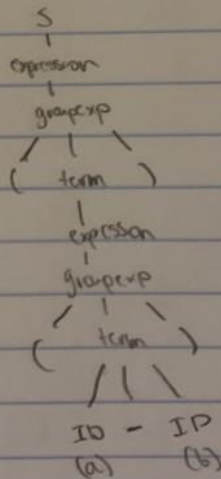 S
expression
groupexp
( term )
expresson
groupexp
( term )
ID - ID
(a) (b)